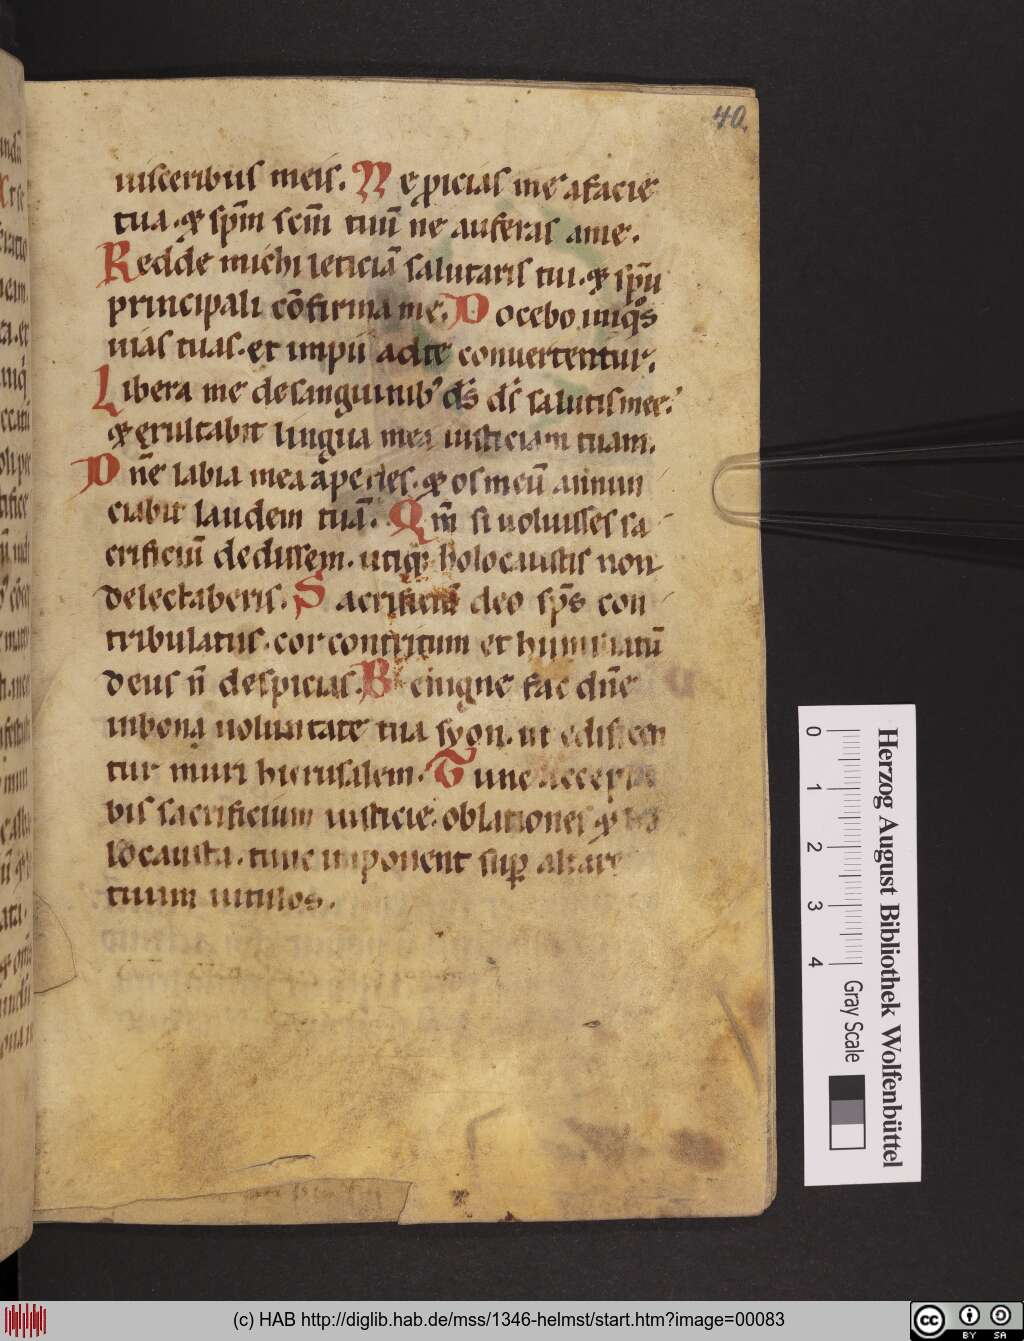 40.
uisceribus meis. Ne proicias me afacie
tua. & spm̄ scm̄ tuū ne auferas ame.
Redde michi leticiā salutaris tui. & spū
principali cōfirma me. Docebo iniqͦs
uias tuas. et impii adte conuertentur.
Libera me desanguinib' ds̄ ds̄ salutis mee.
& exultabit lingua mea iusticiam tuam.
Dn̄e labia mea aperies. & os meū annun
ciabit laudem tuā. Qm̄ si uoluisses sa
crificiū dedissem. utiqꝫ holocaustis non
delectaberis. Sacrificiū deo sps̄ con
tribulatus. cor contritum et humiliatū
deus n̄ despicias. Benigne fac dn̄e
inbona uoluntate tua syon. ut edificen
tur muri hierusalem. Tunc accepta
bis sacrificium iusticie. oblationes & ho
locausta. tunc imponent suꝑ altare
tuum uitulos.
Herzog August Bibliothek Wolfenbüttel
0 1 2 3 4 Gray Scale
(c) HAB http://diglib.hab.de/mss/1346-helmst/start.htm?image=00083
cc BY SA